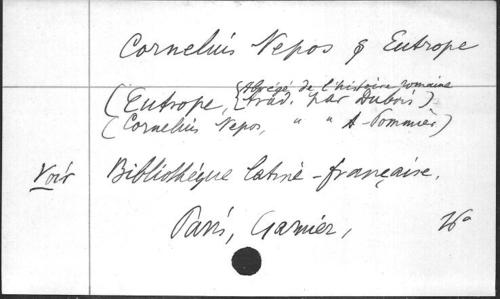 Cornelius Nepos & Eutrope
Abrégé de l'histoire romaine
(Eutrope, trad. par Dubois)
(Cornelius Nepos, " " A-Pommier)
Voir Bibliothèque latine-française.
Paris, Garnier,